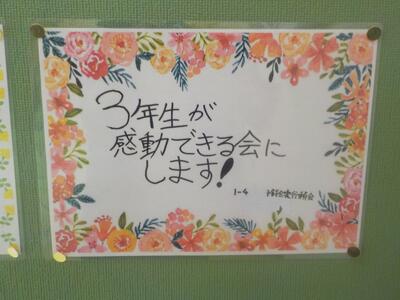 3年生が
感動できる会に
します!
1-4